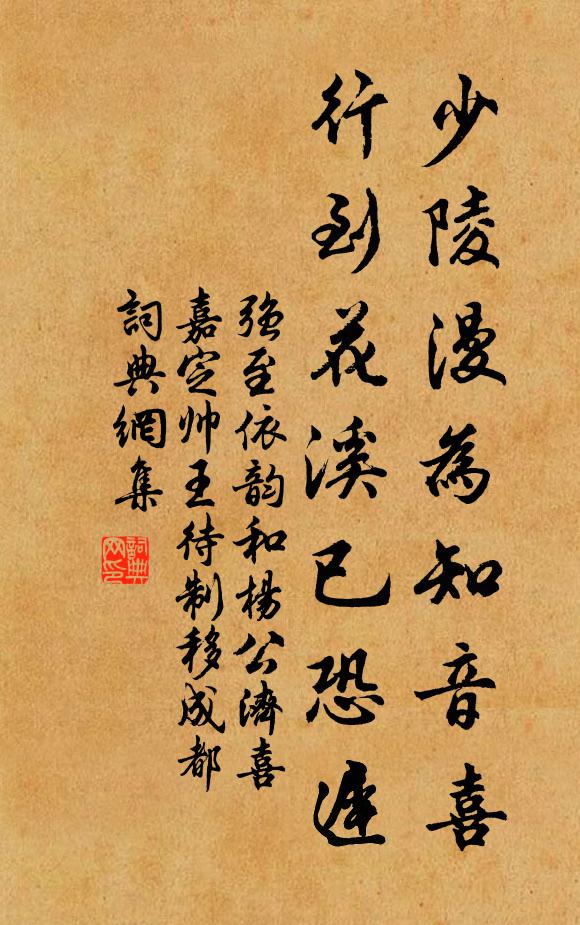 少陵漫為知音喜
行到花溪已恐遲
強至依韵和楊公濟喜
嘉定帅王待制移成都
詞典網集
詞典网印